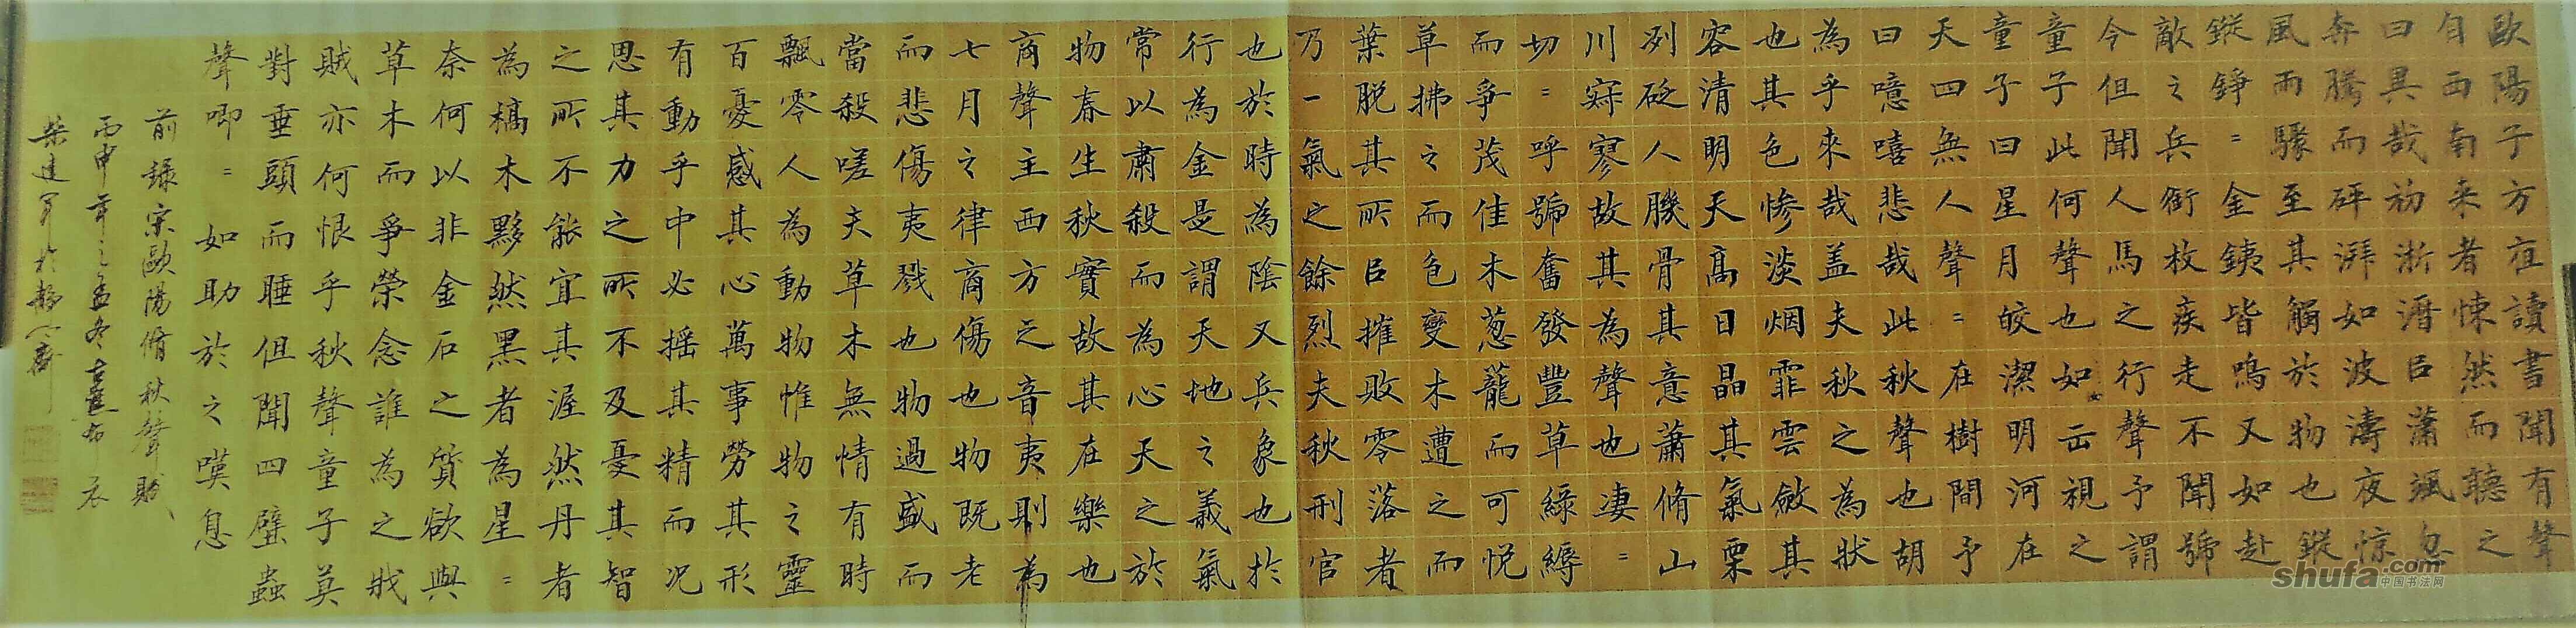 歐陽子方夜讀書聞有聲
自西南来者悚然而聽之
曰異哉初淅瀝以瀟颯忽
奔騰而砰湃如波濤夜惊
風雨驟至其觸於物也鏦
鏦錚=金銕皆鳴又如赴
敵之兵銜枚疾走不聞號
令但聞人馬之行聲予謂
童子此何聲也如出視之
童子曰星月皎潔明河在
天四無人聲=在樹間予
曰噫嘻悲哉此秋聲也胡
為乎來哉盖夫秋之為狀
也其色惨淡烟霏雲斂其
容清明天高日晶其氣栗
冽砭人機骨其意蕭脩山
川寂寥故其為聲也凄=
切=呼號奮發豐草綠縟
而爭茂佳木葱蘢而可悅
草拂之而色變木遭之而
葉脫其所以摧敗零落者
乃一氣之餘烈夫秋刑官
也於時為陰又兵象也於
行為金是謂天地之義氣
常以肅殺而為心天之於
物春生秋實故其在樂也
商聲主西方之音夷則為
七月之律商傷也物既老
而悲傷夷戮也物過盛而
當殺嗟夫草木無情有時
飄零人為動物惟物之靈
百憂感其心萬事勞其形
有動乎中必摇其精而况
思其力之所不及憂其智
之所不能宜其渥然丹者
為槁木黟然黑者為星=
奈何以非金石之質欲與
草木而爭榮念誰為之戕
賊亦何恨乎秋聲童子莫
對垂頭而睡但聞四壁蟲
聲唧=如助於之嘆息
前録宋歐陽脩秋聲賦
丙申年之孟冬古燕布衣
柴建軍於靜心齋
shufa.com
中国书法网